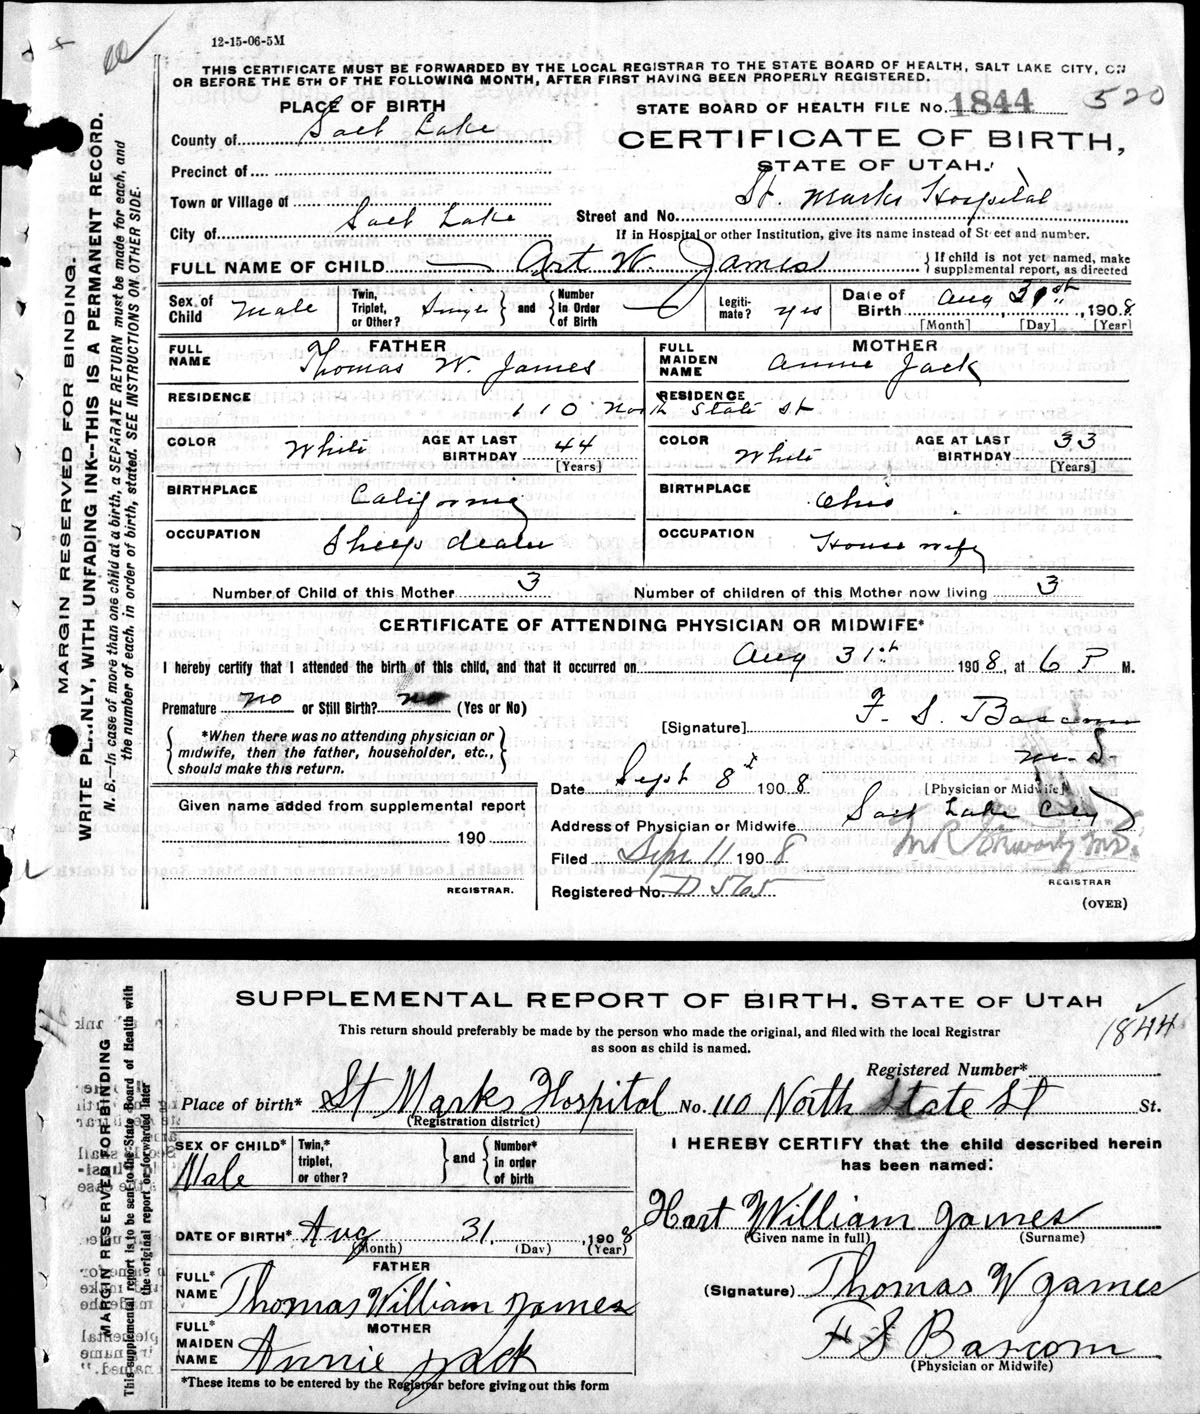 12-15-06-5M
THIS CERTIFICATE MUST BE FORWARDED BY THE LOCAL REGISTRAR TO THE STATE BOARD OF HEALTH, SALT LAKE CITY, ON
OR BEFORE THE 5TH OF THE FOLLOWING MONTH, AFTER FIRST HAVING BEEN PROPERLY REGISTERED.
PLACE OF BIRTH
STATE BOARD OF HEALTH FILE No. 1844 520
County of Salt Lake
CERTIFICATE OF BIRTH,
STATE OF UTAH.
Precinct of
Town or Village of
Street and No. St. Marks Hospital
City of Salt Lake
If in Hospital or other Institution, give its name instead of Street and number.
FULL NAME OF CHILD Art W. James
If child is not yet named, make supplemental report, as directed
Sex of Child Male
Twin, Triplet, or Other? Single and Number In Order of Birth
Legitimate? yes
Date of Birth Aug 31st, 1908
[Month] [Day] [Year]
FATHER
FULL NAME Thomas W. James
MOTHER
FULL MAIDEN NAME Annie Jack
RESIDENCE 110 North State St
RESIDENCE
COLOR White AGE AT LAST BIRTHDAY 44 [Years]
COLOR White AGE AT LAST BIRTHDAY 33 [Years]
BIRTHPLACE California
BIRTHPLACE Ohio
OCCUPATION Sheep dealer
OCCUPATION House wife
Number of Child of this Mother 3
Number of children of this Mother now living 3
CERTIFICATE OF ATTENDING PHYSICIAN OR MIDWIFE*
I hereby certify that I attended the birth of this child, and that it occurred on Aug 31st 1908, at 6 P M.
Premature no or Still Birth? no (Yes or No)
[Signature] F. S. Bascom
M.D.
*When there was no attending physician or midwife, then the father, householder, etc., should make this return.
Date Sept 8th 1908
[Physician or Midwife]
Given name added from supplemental report
190
REGISTRAR.
Address of Physician or Midwife Salt Lake City
Filed Sept 11 1908
Registered No. D 565
REGISTRAR
(OVER)
MARGIN RESERVED FOR BINDING.
WRITE PLAINLY, WITH UNFADING INK--THIS IS A PERMANENT RECORD.
N. B.—In case of more than one child at a birth, a SEPARATE RETURN must be made for each, and
the number of each, in order of birth, stated. SEE INSTRUCTIONS ON OTHER SIDE.
SUPPLEMENTAL REPORT OF BIRTH. STATE OF UTAH
This return should preferably be made by the person who made the original, and filed with the local Registrar
as soon as child is named.
1844
Registered Number*
Place of birth* St Marks Hospital No. 110 North State St St.
(Registration district)
SEX OF CHILD* Male
Twin,* triplet, or other? and Number* in order of birth
I HEREBY CERTIFY that the child described herein
has been named:
Hart William James
(Given name in full) (Surname)
DATE OF BIRTH* Aug 31, 1908
(Month) (Day) (Year)
FATHER
FULL* NAME Thomas William James
(Signature) Thomas W James
MOTHER
FULL* MAIDEN NAME Annie Jack
F S Bascom
(Physician or Midwife)
*These items to be entered by the Registrar before giving out this form
MARGIN RESERVED FOR BINDING
This supplemental report is to be sent to the State Board of Health with
the original report or forwarded later